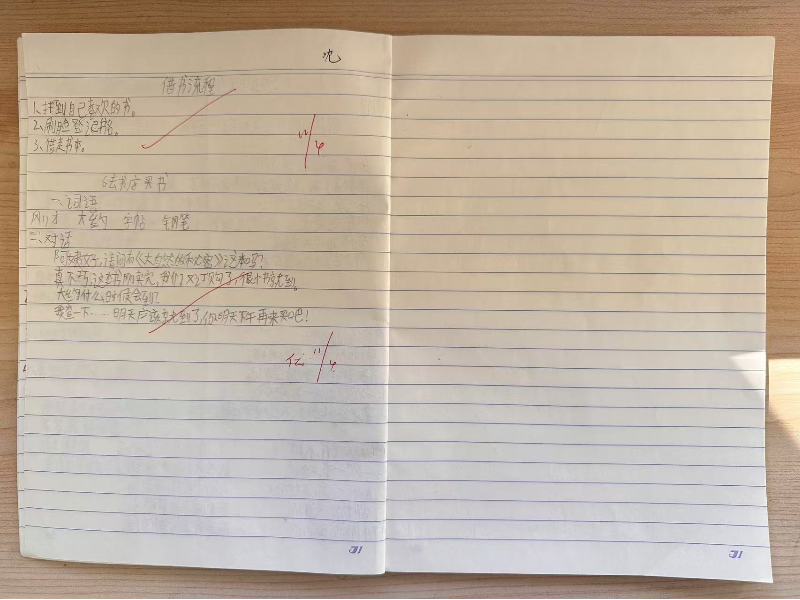 沈
借书流程
1、找到自己喜欢的书。
2、刷脸登记书名。
3、借走书本。
11/4
去书店买书
一、词语
刚才 大约 字帖 钢笔
二、对话
阿姨好,请问有《大自然的》这本吗?
真不巧,这本书刚卖完,我们又订购了,很快就到。
大约什么时候会到?
我查一下……明天应该就到了,你明天下午再来买吧!
11/4